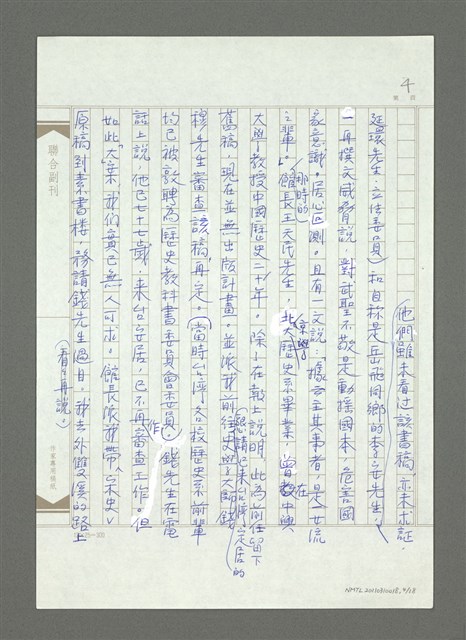 4
他們雖未看过該書稿,亦未求証,
延環先生,立法委員)和自称是岳飛同鄉的李安先生,
一再撰文威脅說,對武聖不敬是動摇國本,危害國
家意識。居心叵測。且有一文說:「據台主其事者,是一女流
之輩」。那時的館長王天民先生,北京大學歷史系畢業,曾在中興
大學教授中國歷史二十年。除了在報上說明,此為前任留下
舊稿,現在並無出版計畫。並派我前往史學大師錢
懇請已來台灣定居的
穆先生審查該稿再定,(當時台灣各校歷史系前輩
均已被敦聘為歷史教科書委員會委員。)錢先生在電
話上說,他已七十七歲,來台安居,已不再審查工作。但
作
如此「大」案,我們實已無人可求。館長派我帶《宋史》
原稿到素書楼,務請錢先生過目,我去外雙溪的路上
(看了再說。
聯合副刊
作家專用稿紙
25×300
NMTL20110810018_4/18